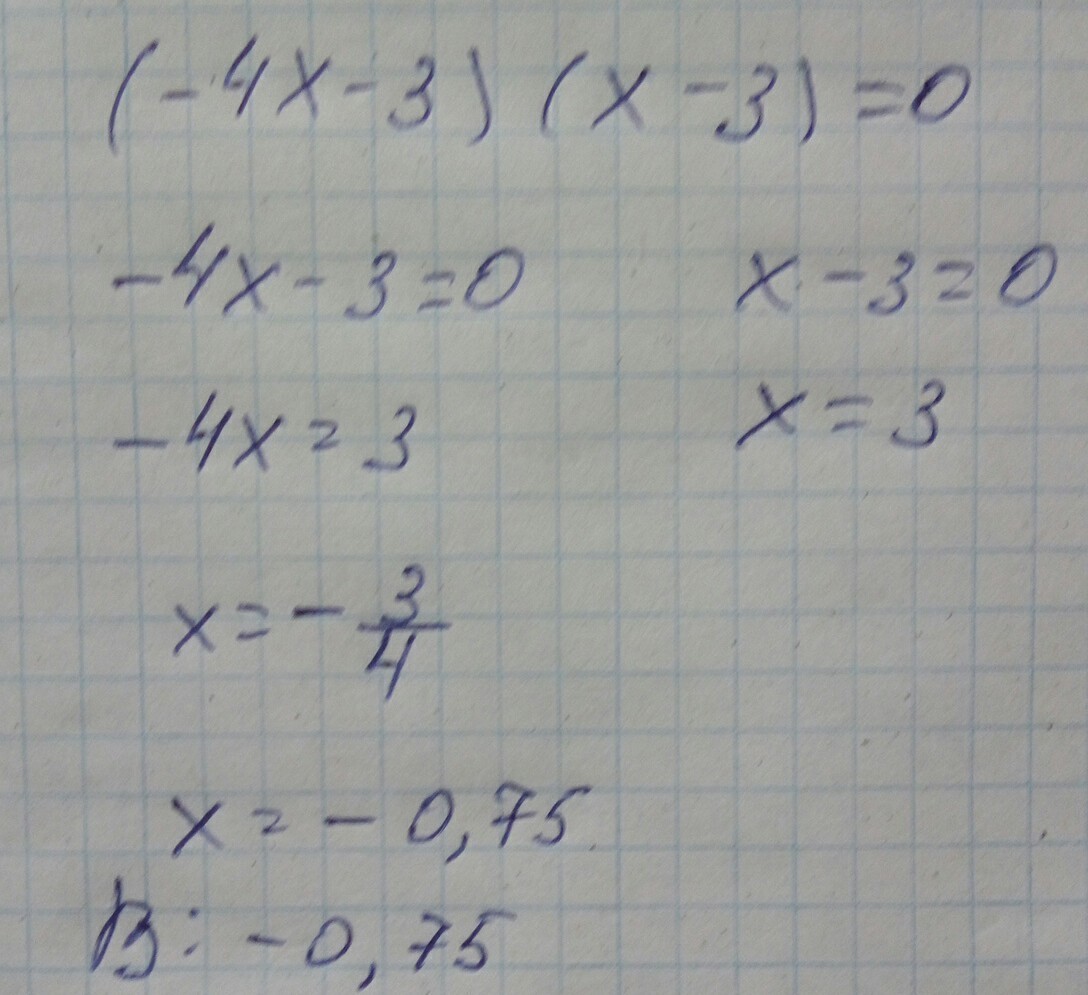 (-4x-3)(x-3)=0
-4x-3=0 x-3=0
-4x=3 x=3
x=-3/4
x=-0,75
В: -0,75